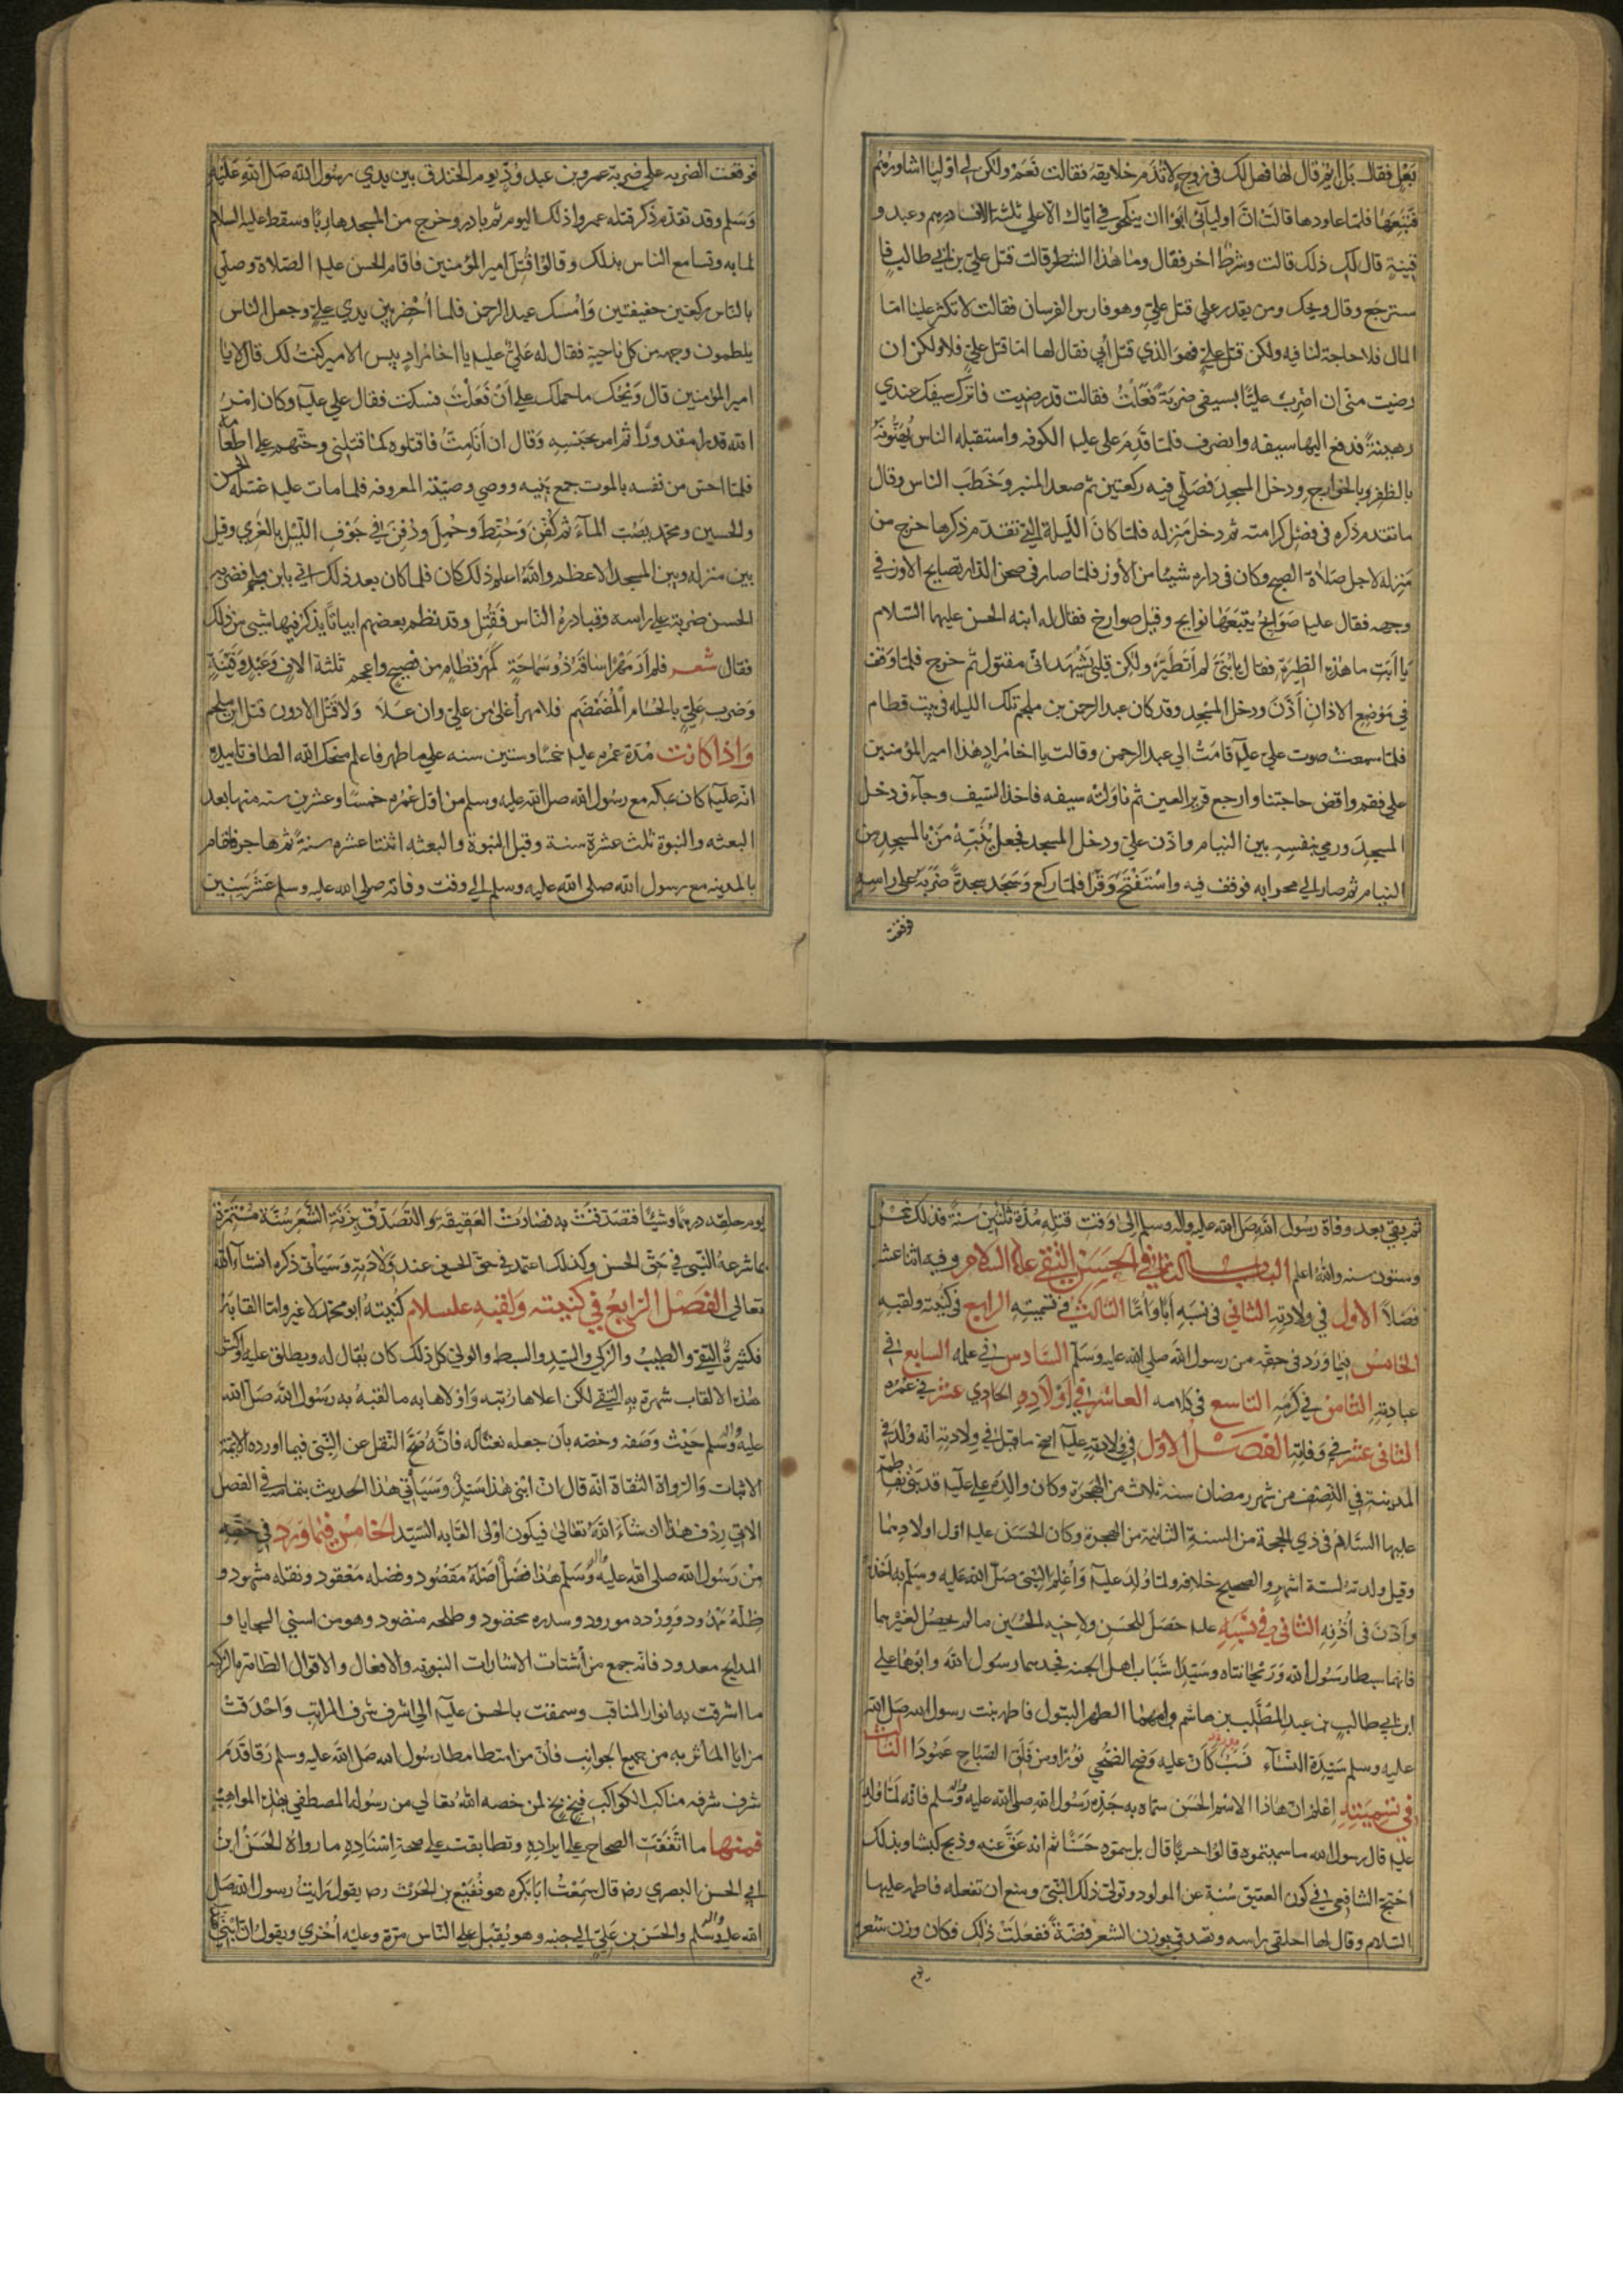 بَعْلٍ فقال بل ايّم قال لها فهل لك في زوج لا تُذَم خلايقه فقالت نَعَمْ ولكن لي اوليا اشاورهم
فتبعها فلمّا عاودها قالت انّ اوليآئي ابوا ان ينكحوني ايّاك الّا علي ثلثة الاف درهم وعبد و
قينةٍ قال لك ذلك قالت وشرط اخر فقال وما هذا الشطر قالت قتل علي بن ابي طالب فا
سترجع وقال ويحك ومن يقدر علي قتل عليّ وهو فارس الفرسان فقالت لا تكثر علينا امّا
المال فلا حاجة لنا فيه ولكن قتل عليّ فهو الذي قتل أبي فقال لها امّا قتل عليّ فلا ولكن ان
رضيت منّي ان اضرب عليّا بسيفي ضربةً فَعَلْتُ فقالت قد رضيت فاترك سيفك عندي
رهينةً فدفع اليها سيفه وانصرف فلمّا قَدِمَ علي عليه الكوفه واستقبله الناس يُهَنُّونَهُ
بالظفر بالخوارج ودخل المسجِدَ فصَلّي فيه ركعتين ثم صعد المنبر وَخَطَبَ الناس وقال
ما تقدم ذكره في فضل كرامته ثم دخل مَنزِله فلمّا كانَ الليلة التي تقدّم ذكرها خرج من
مَنزِله لاجل صَلاة الصبح وكان في داره شيئا من الأوز فلمّا صار في صحن الدار تصايح الاوز في
وجهه فقال عليه صَوَائحُ يتبَعَهَا نوايح وقيل صوارخ فقال له ابنه الحسن عليهما السّلام
يا اَبَتِ ما هذه الطِيَرَة فقال يا بُنَيَّ لم اَتَطَيَّرْ ولكن قلبي يَشْهَد انّي مقتول ثم خرج فلمّا وقف
في مَوْضع الاذان أَذَّنَ ودخل المسْجِد وقد كان عبد الرحمن بن ملجم تلك الليله في بيت قطام
فلمّا سمعت صوت علي عليه قامَتْ الي عبد الرحمن وقالت يا اخا مُرادٍ هذا امير المؤمنين
علي فقم واقض حاجتنا وارجع قرير العين ثم ناوَلته سيفه فاخذ السّيف وجآء ودخل
المسجِدَ ورمي بنفسِهِ بين النيام واذن عليّ ودخل المسجد فجعل يُنَبّهُ مَنْ بالمسجِدِ من
النيام ثم صار الي محرابه فوقف فيه واسْتَفْتَحَ وَقَرَا فلمّا ركع وَسَجَدَ سجدةً ضَرَبَهُ علي راسه
فوقعت
فوقعَت الضربه علي ضربة عمرو بن عبد ودّ يوم الخندق بين يدي رسُول الله صَلّ اللّه عَلَيْه
وَسَلم وقد تقدّم ذكر قتله عمروا ذلك اليوم ثم بادر وخرج من المسجد هاربًا وسقط عليه السلام
لما به وتسامع الناس بذلك وقالوا قُتِلَ امير المؤمنين فاقام الحسن عليه الصّلاة وصلّي
بالناس ركعتين خفيفتين وَاُمْسك عبد الرحمن فلمّا اُحْضِرَ بين يدي عليّ وجعل الناس
يلطمون وجهه من كل ناحيةٍ فقال له عَليّ عليه يا اخا مُرادٍ بيس الامير كنتُ لك قال لا يا
امير المؤمنين قال وَيْحَكَ ما حملك علي اَنْ فَعَلْتَ فسكت فقال علي عليه وكان امْرُ
اللّه قدرًا مقدورًا ثم امر بحبسِه وَقال ان اَنَامِتُّ فاقتلوه كما قتلني وحثّهم علي اطعامه
فلمّا احسّ من نفسه بالموت جمع بَنِيه ووصي وصيّته المعروفه فلما مات عليه غَسَله الحسن
والحسين ومحمّد يصُبّ المآءَ ثم كُفّنَ وَحُنِّطَ وحُمِلَ ودُفِنَ في جَوْفِ الليْل بالغَري وقيل
بين منزله وبين المسجد الاعظم واللّهُ اعلم ذلك كان فلما كان بعد ذلك اتي بابن ملجم فضربه
الحسن ضربة علي راسه وقبادره الناس فقُتل وقد نظم بعضهم ابياتًا يذكر فيها شيئ من ذلك
فقال شعر فلم اَرَ مَهْرًا ساقَهُ ذُو سَمَاحَةٍ كَمَهْر قَطَامٍ من فصيح واعجم ثلثة الافٍ وَعَبْدٍ وَقَيْنَةٍ
وَضرب عَليّ بالحُسَام المُصَمَّم فلا مهر أغلي من علي وان عَلا وَلا قَتْل الا دون قتل ابن ملجم
وَاذا كانت مُدّة عمْره عليه خمسًا وستين سنه علي ما ظهر فاعلم منحك اللّه الطاف تاييده
انّه عليه كان بمكه مع رسول اللّه صل اللّه عليه وسلم من اوّل عمُره خمسًا وعشرين سنه منها بعد
البعثه والنبوة ثلث عشرة سنة وقبل النبوة والبعثه اثنتا عشره سنةً ثم هاجر فاقام
بالمدينه مع رسول اللّه صلي اللّه عليه وسلم الي وقت وفاته صلي الله عليه وسلم عَشْر سنِين
ثم بقي بعد وفاة رسُول اللّه صَل اللّه عليه واله وسلم الي وَقت قتله مُدّة ثلثين سنةً فذلك خمس
وستون سنه واللّهُ اعلم الباب الثاني في الحسَن التقي عليه السلام وفيه اثنا عشر
فَصلاً الاول في ولادته الثاني في نسَبِهِ أبًا وَأُمًّا الثالث في تسميته الرابع في كُنيَته ولقبه
الخامِسُ فيما وَرَد في حقّه من رسول اللّه صلي اللّه عليه وَسَلّم السّادس في علمه السابع في
عبادته الثّامِن في كرَمِهِ التاسع في كلامه العاشر في اَوْلادِه الحادي عشر في عمره
الثاني عشر في وَفاته الفصل الاوّل في ولادته عليه اصَحّ ما قيل في ولادته انه ولد في
المدينة في النّصْف من شهر رمضان سنه ثلاث من الهجرة وكان والده علي عليه قد بَنى بفاطمة
عليها السَّلامُ في ذي الحجة من السنة الثانية من الهجرة وكان الحَسَن عليه اوّل اولادهما
وقيل ولدته لستة اشهرٍ والصحيح خلافه ولمّا ولد عليه وَاُعْلِمَ النّبيّ صَلّ اللّه عليه وسَلّم به اَخَذَهُ
واَذّنَ في اُذُنِهِ الثّاني في نَسَبِهِ عليه حَصَلَ للحَسَنِ ولاخيه الحُسَيْن ما لم يحصُل لغيْرِهما
فانهما سبطا رَسُول اللّه وَرَيْحَانتاه وسَيّدا شَبَاب اهل الجنه فجدهما رسُول اللّه وابوهما علي
ابن ابي طالب بن عبد المُطَّلِب بن هاشم وامهما الطهر البتول فاطمه بنت رسول اللّه صَلّ اللّه
عليه وسلم سَيّدَة النّسَاء نَسَبٌ كَأَنَّ عليه من شمس الضُحي نُورًا ومن فَلَقِ الصَّبَاحِ عَمُودَا الثّالث
في تسميته اعْلم ان هَاذا الاسْم الحَسَن سمّاه به جَدّه رَسُول اللّه صلي اللّه عليه واله وسلم فانه لَمّا وُلدَ
عليه قال رسول اللّه ما سميتموه قالوا حربًا قال بل سموه حَسَنًا ثم انه عَقَّ عنه وذبح كبشا وبذلك
احتجّ الشافعي في كون العقيق سُنة عن المولود وتولي ذلك النّبيّ ومنع ان تفعله فاطمه عليها
السّلام وقال لها احلقي راسه وتصدقي بوزن الشّعر فضةً ففعَلَتْ ذلك وكان وزن شعره
يوم
يوم حلقه درهمًا وشيئًا فتصدقَتْ به فصَارتِ العَقيقة وَالتّصَدّق بزِنَةِ الشّعَر سُنّة مُسْتَمرّة
بما شرعهُ النّبي في حَقّ الحسن وكذلك اعتمد في حقّ الحسين عند ولادته وَسَياتي ذكره انشآء اللّه
تعالي الفَصْل الرّابع في كنيته وَلقبه عليه السلام كُنيتهُ ابو محمّد لا غير وامّا القابهُ
فكثيرةٌ التقي والطيبُ والزكي والسّيّد والسبط والولي كل ذلك كان يُقال له ويطلق عليه واكثر
هٰذه الالقاب شهرة به التقي لكن اعلاها رُتبه وَاَوْلاها به ما لقبهُ به رَسُول اللّه صَلّ اللّه
عليه واله وسَلم حَيْث وصفه وخصّه بأن جعله نعتًا له فانّهُ صَحَّ النّقل عن النّبيّ فيما اورده الايمة
الاثبات وَالرّواة الثقاة انّه قال انّ ابني هٰذا سَيّدٌ وَسَيَأتي هذا الحديث بتمامه في الفصل
الاتي رِدْف هٰذا ان شآء اللّهُ تعالي فيكون اولي القابه السّيّد الخامِسُ فيما وَرَد في حَقّه
مِنْ رَسُول اللّه صلي اللّه عليه واله وسَلّم هٰذا فصْلٌ اَصْلُهُ مَقصُود وفضله مَعْقود ونقله مشهود و
ظلّهُ ممْدُود وَوِرْده مورود وسدره مخضود وطلحه منضود وهو من اسني السجايا و
المدايح معدود فانّه جمع من أشتات الاشارات النبويّه والافعال والاقوال الطاهرة الزكيه
ما اشرقت به انوار المناقب وسمقت بالحسن عليه الي اشرف شرف المراتب وَاحْدَقتْ
مزايا المآثر به من جميع الجوانب فانّ من امتطا مطا رسُول الله صَل اللّه عليه وسلم رَقا قَدَمَ
شرف شرفه مناكب الكواكب فبخ بخ لمن خصه اللّهُ تعالي من رسُوله المصطفي بهٰذه المواهِب
فمنها ما اتَّفَقَت الصحاح علي ايرادِهِ وتطابقت علي صحة اسْنَاده ما رواهُ الحَسَنُ ابنُ
ابي الحسن البصري رضه قال سَمِعْتُ اَبَا بَكره هو نُفَيْع بن الحرث رضه يقول رَايتُ رسول اللّه صَل
اللّه عليه واله وسلم والحَسَن بن عَليّ الي جنبه وهو يُقبل علي النّاس مرّة وعليْه اُخْري ويقول انّ ابْني هٰذا